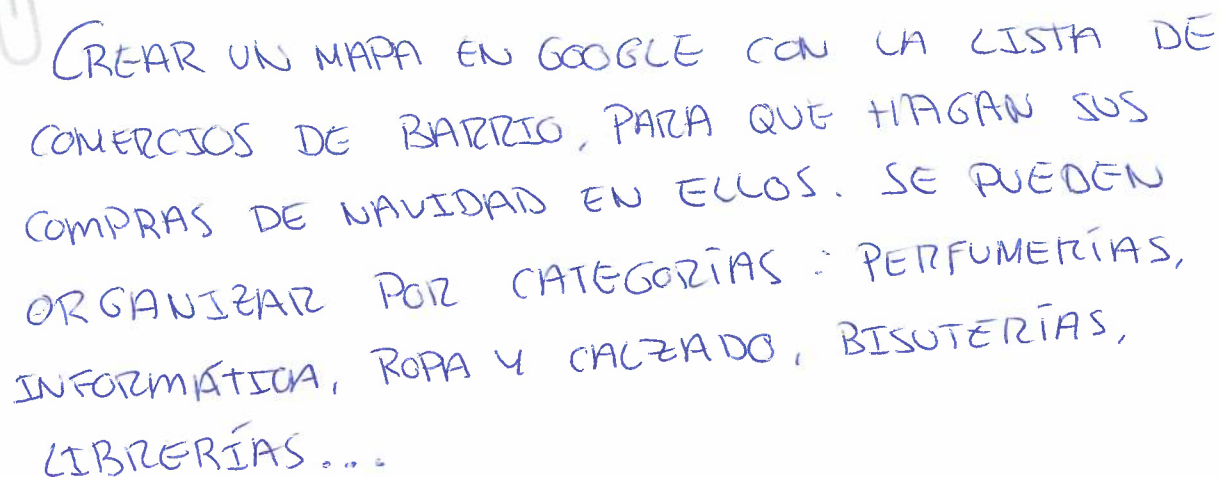 CREAR UN MAPA EN GOOGLE CON LA LISTA DE
COMERCIOS DE BARRIO, PARA QUE HAGAN SUS
COMPRAS DE NAVIDAD EN ELLOS. SE PUEDEN
ORGANIZAR POR CATEGORÍAS: PERFUMERÍAS,
INFORMÁTICA, ROPA Y CALZADO, BISUTERÍAS,
LIBRERÍAS...